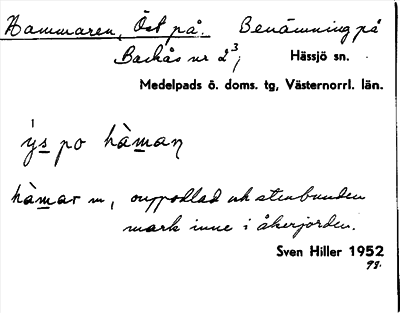 Hammaren, Öst på. Benämning på
Backås nr 2³, Hässjö sn.
Medelpads ö. doms. tg, Västernorrl. län.
y̍s po hàman
hàmar m, ouppodlad och stenbunden
mark inne i åkerjorden.
Sven Hiller 1952
98.